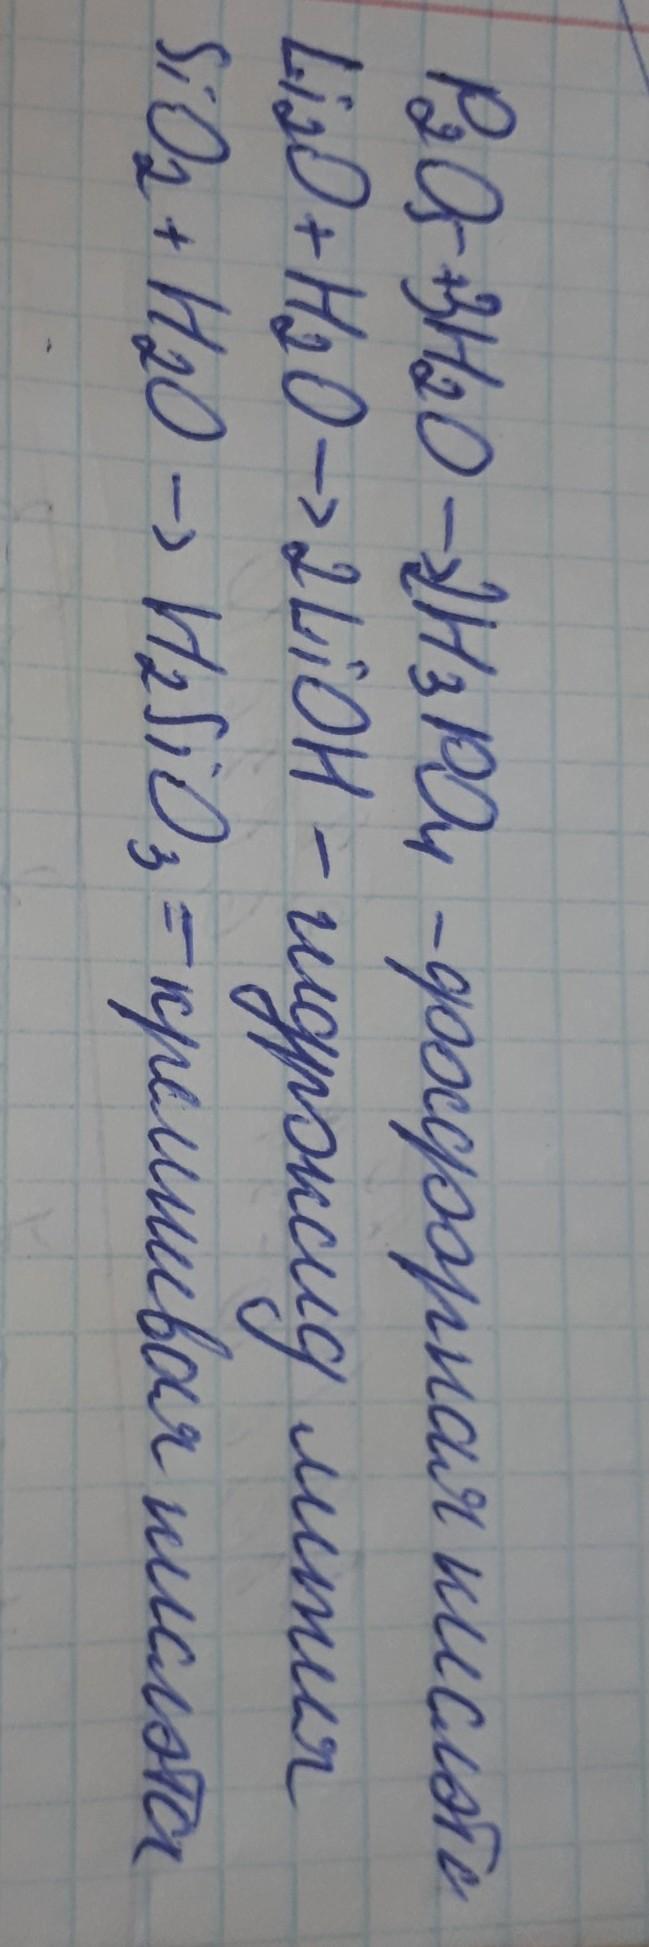 P2O5+3H2O→2H3PO4 -фосфорная кислота
Li2O+H2O→2LiOH - гидроксид лития
SiO2+H2O→H2SiO3=кремнивая кислота